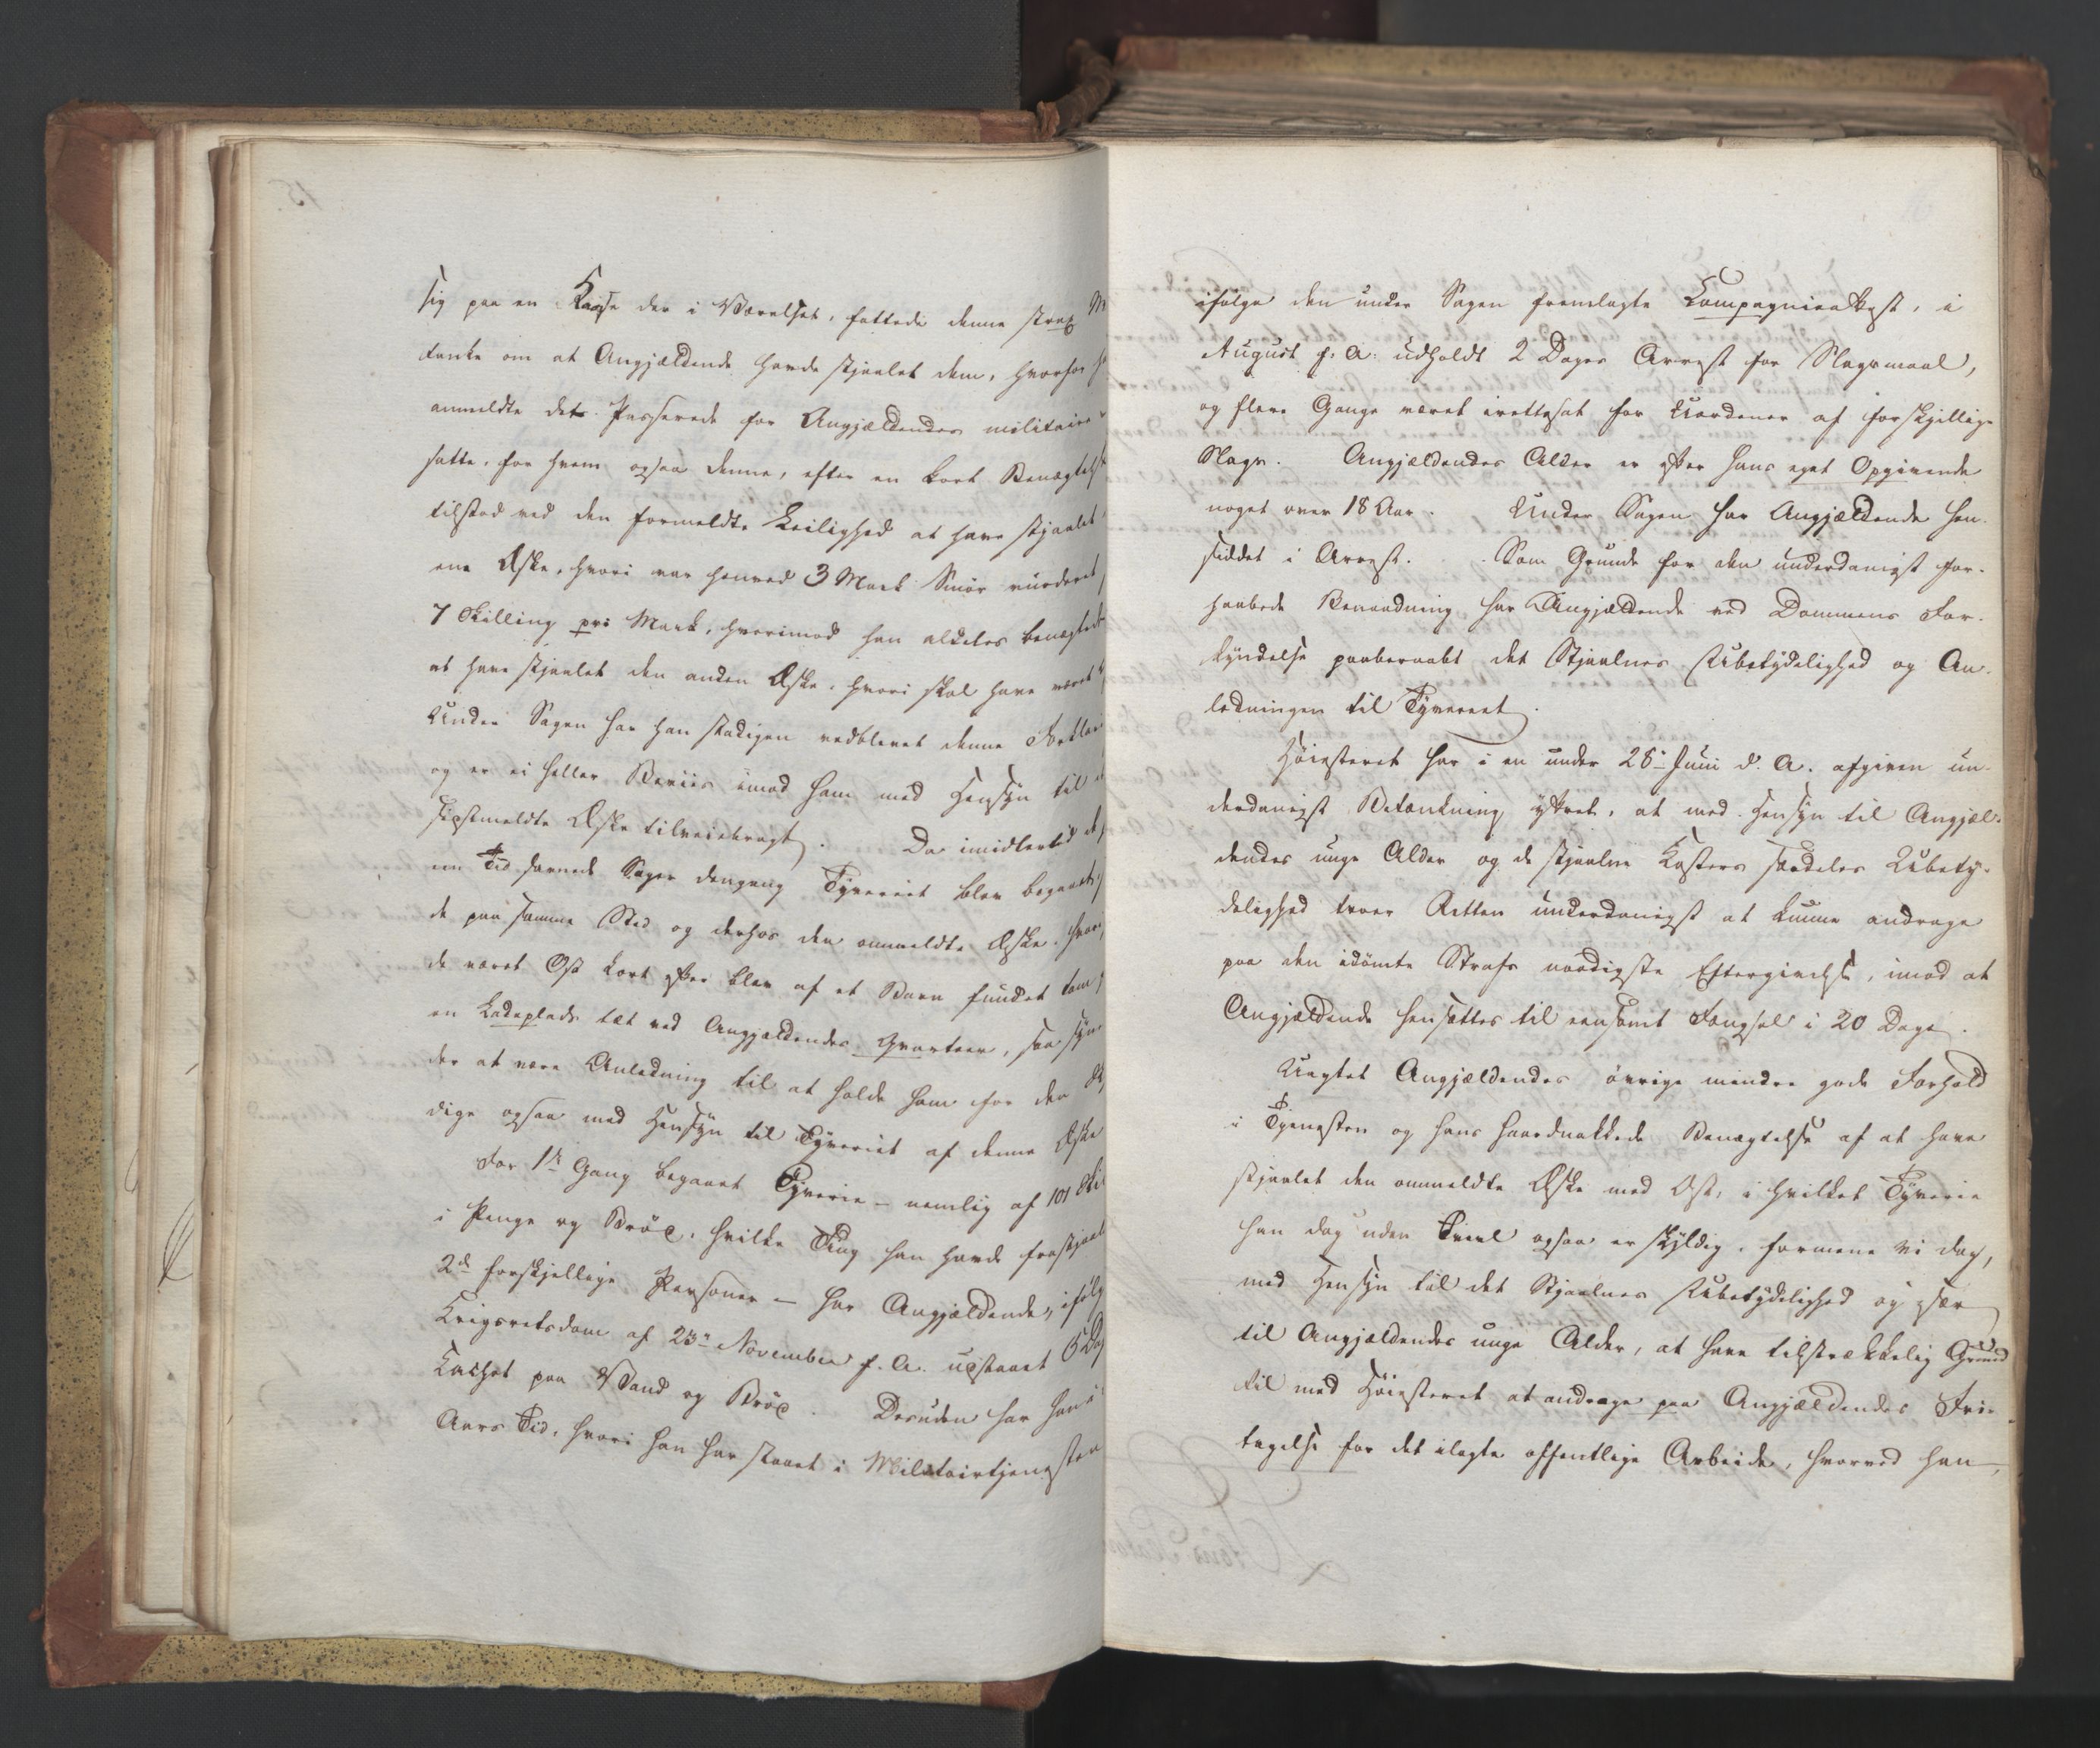 sig paa en Kasse der i Værelset, fattede denne strax M
tanke om at Angjældende havde stjaalet dem, hvorfor h
anmeldte det Passerede for Angjældendes militaire
satte, for hvem ogsaa denne, efter en kort Benægtelse
tilstod ved den formeldte Leilighed at have stjaalet
ene Æske, hvori var henved 3 Mark Smör vurderet
7 Skilling pr: Mark, hvorimod han aldeles benægtede
at have stjaalet den anden Æske, hvori skal have været
Under Sagen har han stadigen vedblevet denne Forklar
og er ei heller Beviis imod ham med Hensyn til
sidstmeldte Æske tilveiebragt. Da imidlertid
nu Tid savnede Sager dengang Tyveriet blev begaaet
de paa samme Sted og derhos den ommeldte Æske, hvor
de været Ost kort efter blev af et Barn fundet tom
en Ladeplads tæt ved Angjældendes Qvarteer, saa syn
der at være Anledning til at holde ham for den Sk
dige ogsaa med Hensyn til Tyveriet af denne Æske
For 1ste Gang begaaet Tyverie – nemlig af 101 Ski
i Penge og Bröd, hvilke Ting han havde frastjaal
2de forskjellige Personer – har Angjældende, ifölg
Krigsretsdom af 23de November f. A. udstaaet 6 Dag
Cachot paa Vand og Bröd. Desuden har han i
Aars Tid, hvori han har staaet i Militairtjenesten
ifölge den under Sagen fremlagte Compagnieattest, i
August f. A. udholdt 2 Dages Arrest for Slagsmaal,
og flere Gange været irettesat for Uordener af forskjellige
Slags. Angjældendes Alder er efter hans eget Opgivende
noget over 18 Aar. Under Sagen har Angjældende hen-
siddet i Arrest. Som Grunde for den underdanigst for-
haabede Benaadning har Angjældende ved Dommens For-
kyndelse paaberaabt det Stjaalnes Ubetydelighed og An-
ledningen til Tyveriet.
Höiesteret har i en under 28de Juni d. A. afgiven un-
derdanigst Betænkning yttret, at med Hensyn til Angjæl-
dendes unge Alder og de stjaalne Kosters særdeles Ubety-
delighed troer Retten underdanigst at kunne andrage
paa den idömte Strafs naadigste Eftergivelse, imod at
Angjældende hensættes til eensomt Fængsel i 20 Dage.
Uagtet Angjældendes övrige mindre gode Forhold
i Tjenesten og hans haardnakkede Benægtelse af at have
stjaalet den ommeldte Æske med Ost, i hvilket Tyverie
han dog uden Tvivl ogsaa er skyldig, formene vi dog,
med Hensyn til det Stjaalnes Ubetydelighed og især
til Angjældendes unge Alder, at have tilstrækkelig Grund
til med Höiesteret at andrage paa Angjældendes Fri-
tagelse for det ilagte offentlige Arbeide, hvorved han